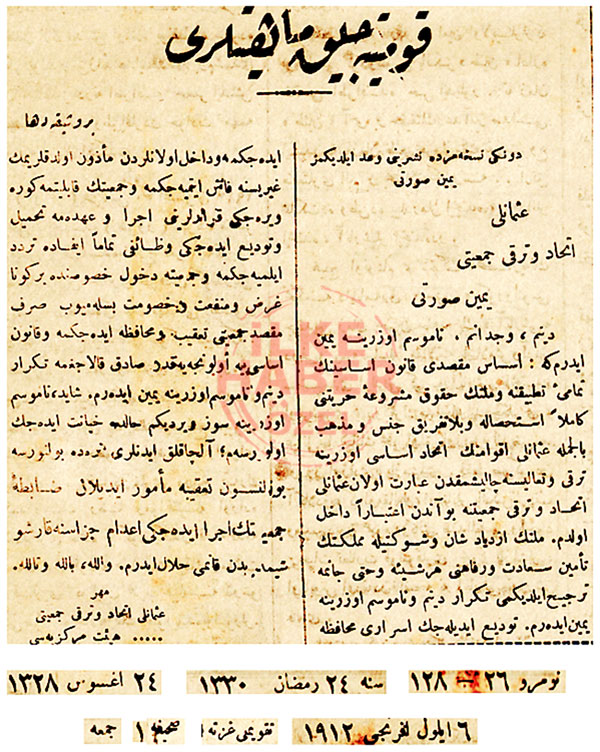 قومیته‌جیلق میثاقیتلری
دونكی نسخه‌مزده نشرینی وعد ایلدیكمز
یمین صورتی
عثمانلی
اتحاد وترقی جمعیتی
یمین صورتی
دینم ، وجدانم . ناموسم اوزرینه یمین
ایدرمكه : أساس مقصدی قانون اساسینك
تمامئ تطبیقنه وملتك حقوق مشروعهٔ حریتنی
كاملاً استحصاله وبلاتفریق جنس ومذهب
بالجمله عثمانلی اقوامنك اتحاد اساسی اوزرینه
ترقی وتعالیسنه چالیشمقدن عبارت اولان عثمانلی
اتحاد وترقی جمعیتنه بوآندن اعتباراً داخل
اولدم. ملتك ازدیاد شان وشوكتیله مملكتك
تأمین سعادت ورفاهنی هرشیئه وحتی جانمه
ترجیح ایلدیكمی تكرار دینم وناموسم اوزرینه
یمین ایدەرم. تودیع ایدیله‌جك اسراری محافظه
ایده‌جكمه وداخل اولانلردن مأذون اولدقلریمك
غیریسنه فاش ایتمیه‌جكمه وجمعیتك قابلیتمه كوره
ویره‌جكی قرارلرینی اجرا و عهده‌مه تحمیل
وتودیع ایده‌جكی وظائفی تماماً ایفاده تردد
ایلمیه‌جكمه وجمعیته دخول خصوصنده بركونا
غرض ومنفعت وخصومت بسله‌میوب صرف
مقصد جمعیتی تعقیب ومحافظه ایده‌جكمه وقانون
اساسی‌یه أولونجه‌یه‌قدر صادق قالاجغمه تكرار
دینم وناموسم اوزرینه یمین ایدەرم. شاید، ناموسم
اوزرینه سوز ویردیكم حالده خیانت ایده‌جك
اولورسه‌م؛ آلچاقلق ایدنلری نرده‌ده بولنورسه
بولنسون تعقیبه مأمور ایدیلان ضابطهٔ
جمعیتك اجرا ایده‌جكی اعدام جزاسنه قارشو
شیمدیدن قانمی حلال ایدرم. والله، بالله وتالله.
مهر
عثمانلی اتحاد وترقی جمعیتی
..... هیئت مركزیه‌سی
نومرو ٢٦ — ١٢٨ سنه ٢٤ رمضان ١٣٣٠ ٢٤ اغستوس ١٣٢٨
٦ ایلول افرنجی ١٩١٢ تقویمی غزته ١ صحیفه ١ جمعه
İLKE
HABER
ÖZEL